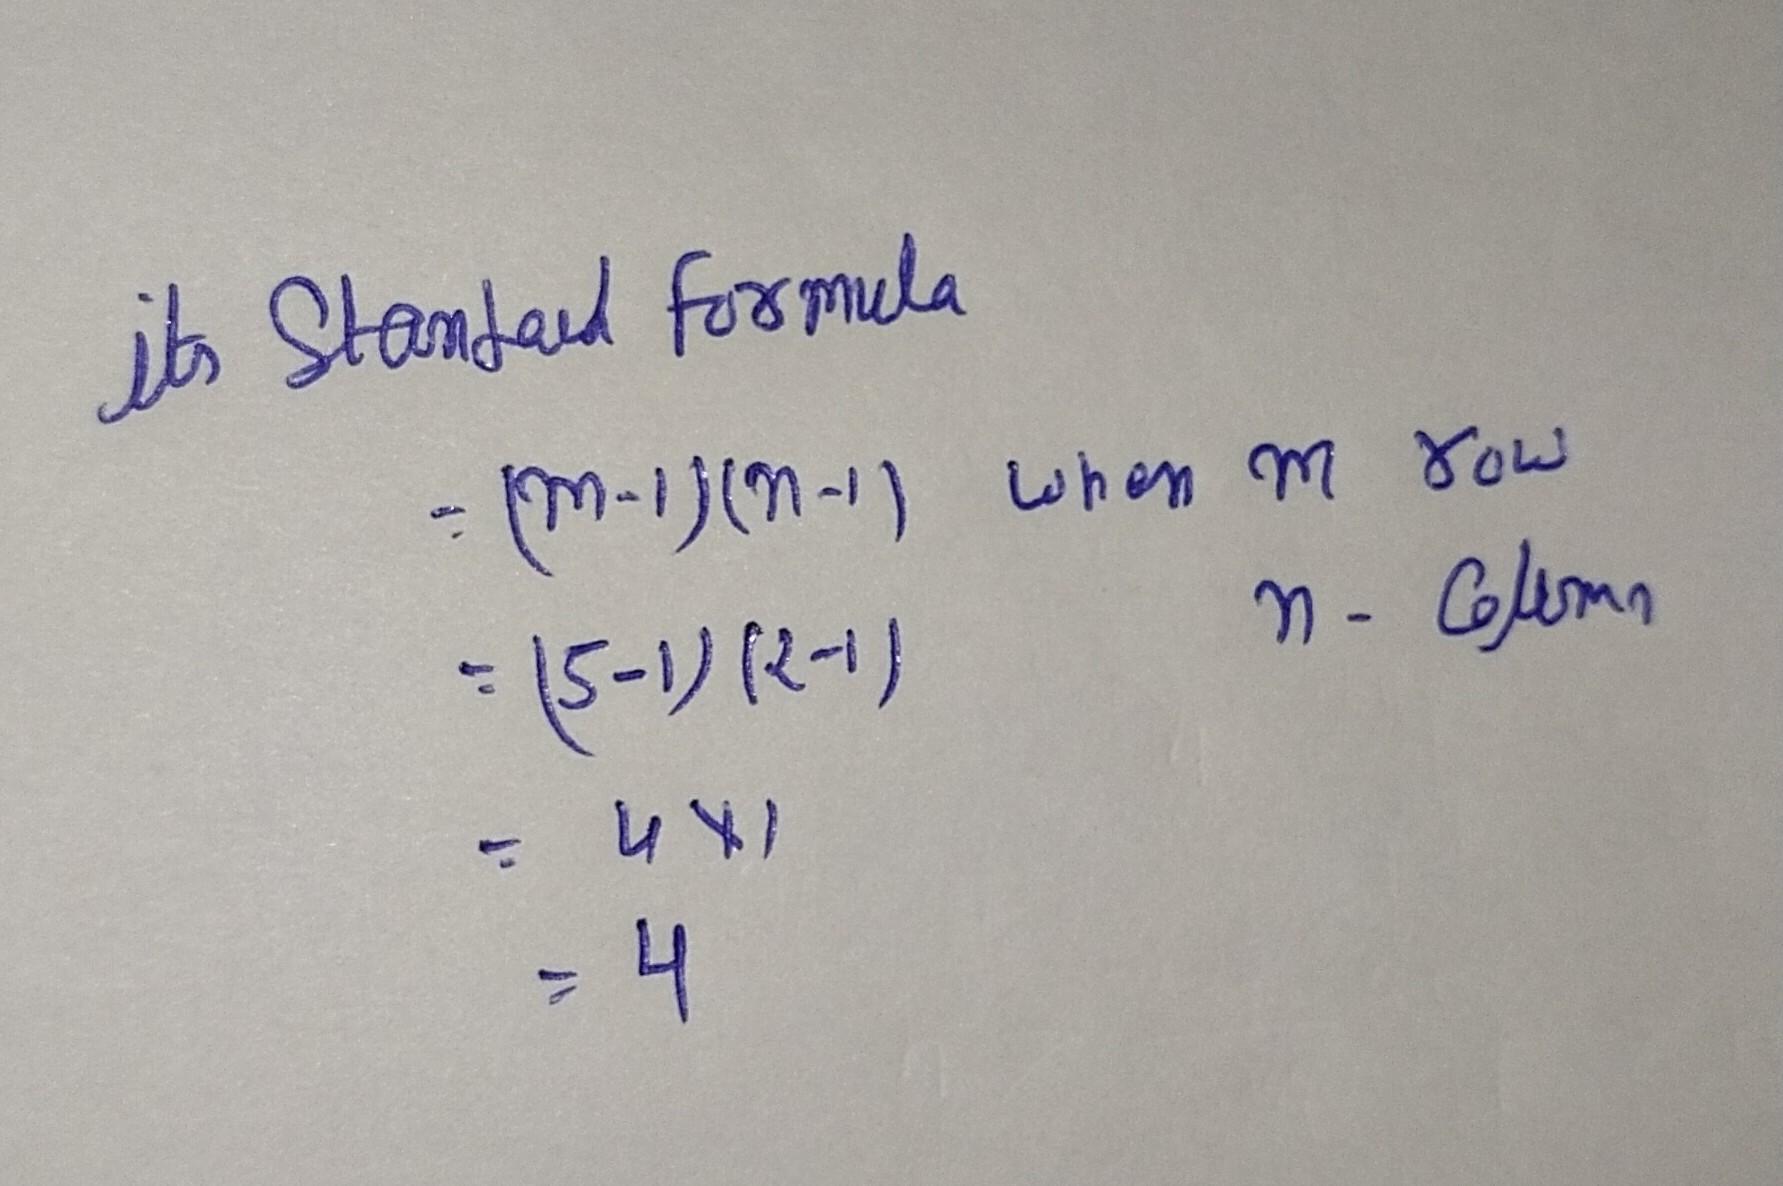 its Standard formula
= (m-1)(n-1) when m row
n - Column
= (5-1) (2-1)
= 4 x 1
= 4